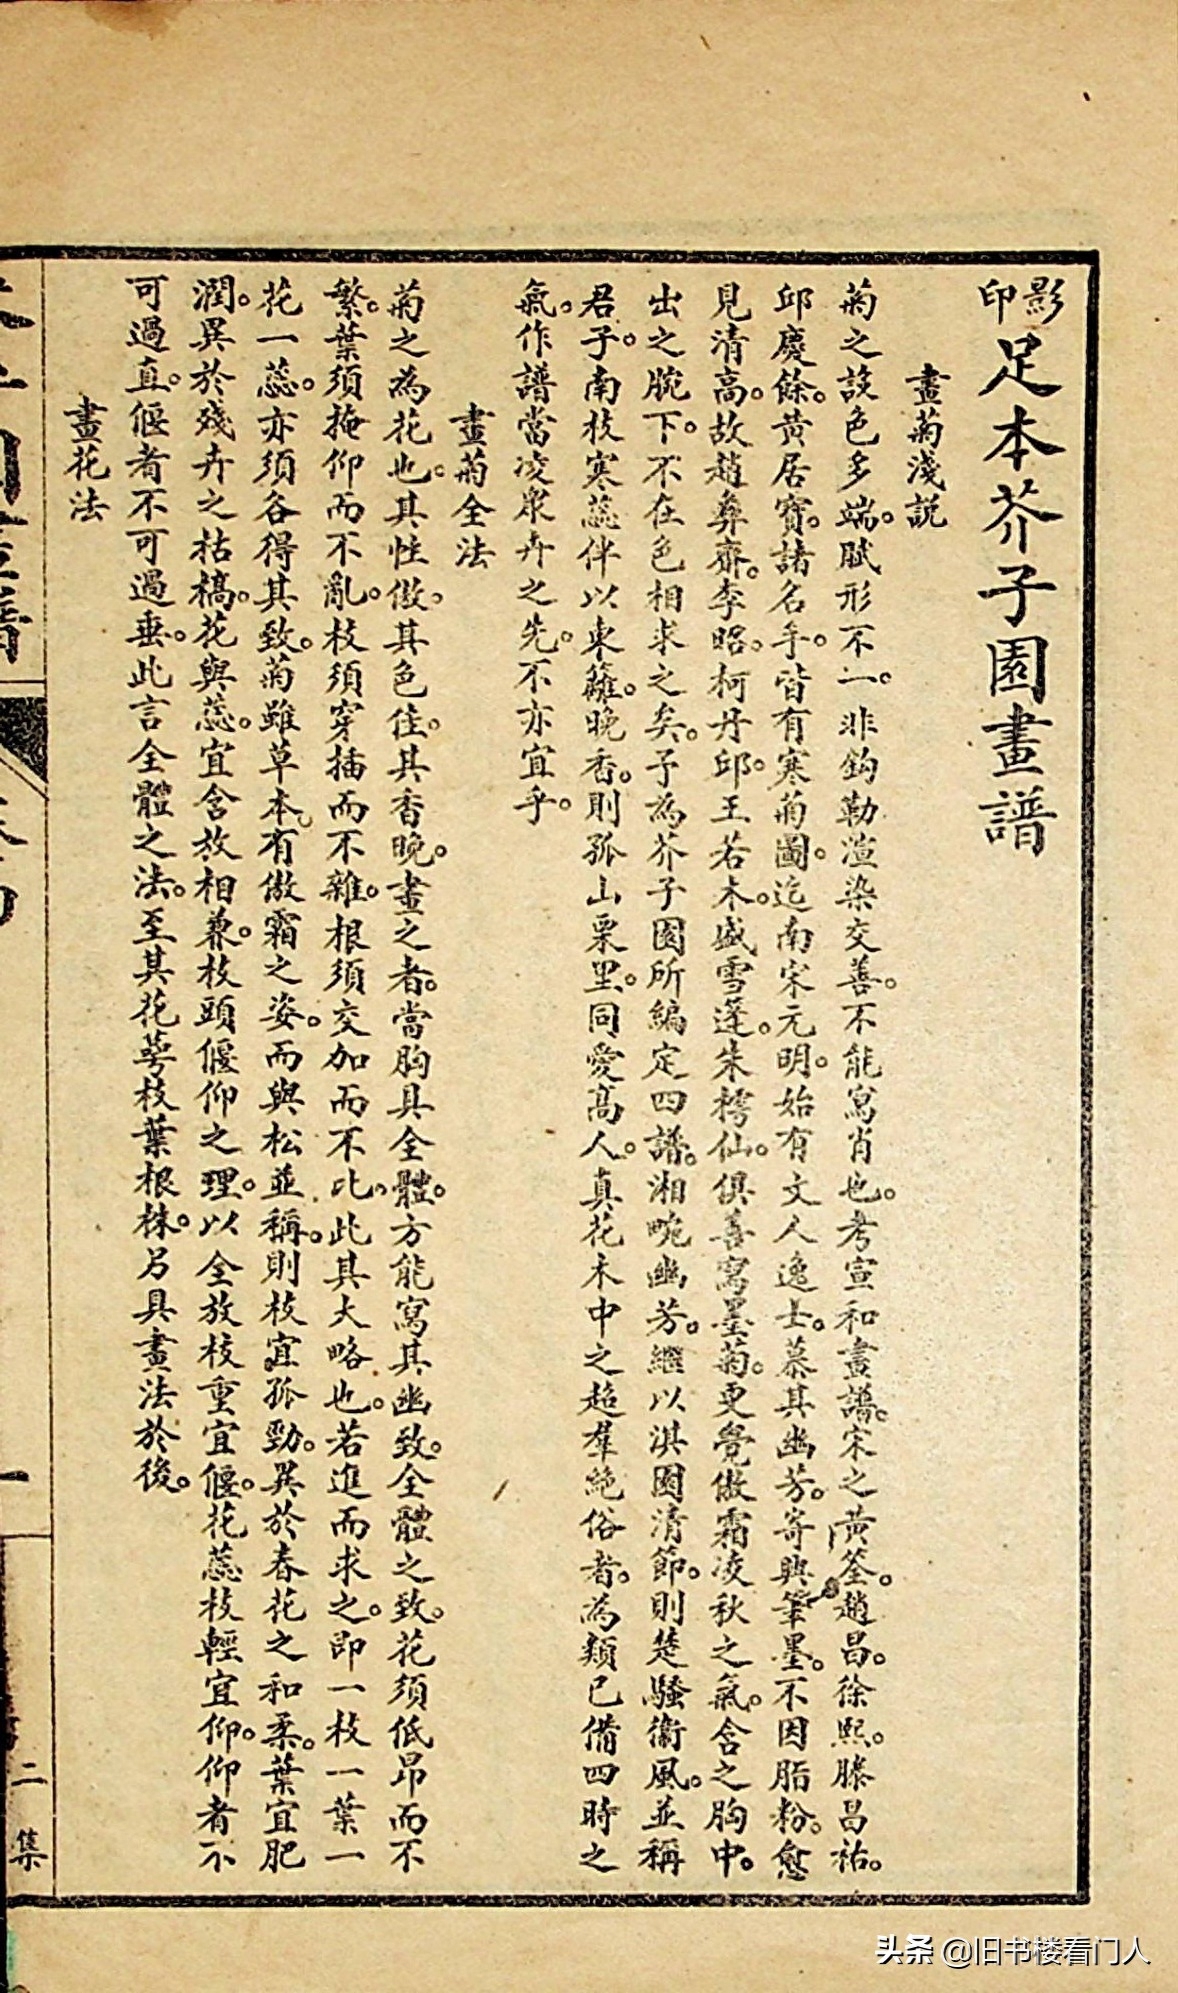 影印足本芥子園畫譜
畫菊淺説
菊之設色多端。賦形不一。非鈎勒渲染交善。不能寫肖也。考宣和畫譜。宋之黃筌。趙昌。徐熙。滕昌祐。
邱慶餘。黃居寶。諸名手。皆有寒菊圖。迄南宋元明。始有文人逸士。慕其幽芳。寄興筆墨。不因脂粉。愈
見清高。故趙彝齋。李昭。柯丹邱。王若木。盛雪蓬。朱樗仙。俱善寫墨菊。更覺傲霜凌秋之氣。含之胸中。
出之腕下。不在色相求之矣。予為芥子園所編定四譜。湘畹幽芳。繼以淇園清節。則楚騷衞風。並稱
君子。南枝寒蕊伴以東籬。晚香。則孤山栗里。同愛高人。真花木中之超羣絶俗者。為類已備四時之
氣。作譜當凌衆卉之先。不亦宜乎。
畫菊全法
菊之為花也。其性傲。其色佳。其香晚。畫之者。當胸具全體。方能寫其幽致。全體之致。花須低昂而不
繁。葉須掩仰而不亂。枝須穿插而不雜。根須交加而不比。此其大略也。若進而求之。即一枝一葉一
花一蕊。亦須各得其致。菊雖草本。有傲霜之姿。而與松並稱。則枝宜孤勁。異於春花之和柔。葉宜肥
潤。異於殘卉之枯槁。花與蕊。宜含放相兼。枝頭偃仰之理。以全放枝重宜偃。花蕊枝輕宜仰。仰者不
可過直。偃者不可過垂。此言全體之法。至其花萼枝葉根株。另具畫法於後。
畫花法
一
二集
头条 @旧书楼看门人